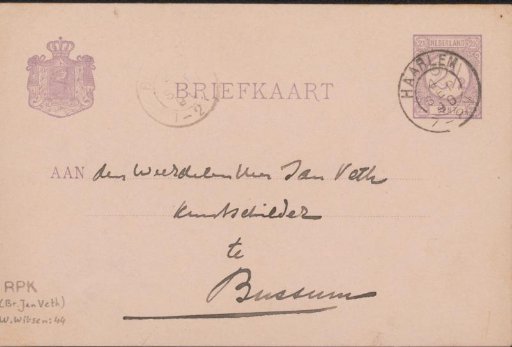 NEDERLAND
HAARLEM
BRIEFKAART
7-2
AAN den Weledelen Heer Jan Veth
Kunstschilder
te
Bussum
RPK
(Br. Jan Veth)
W. Witsen: 44